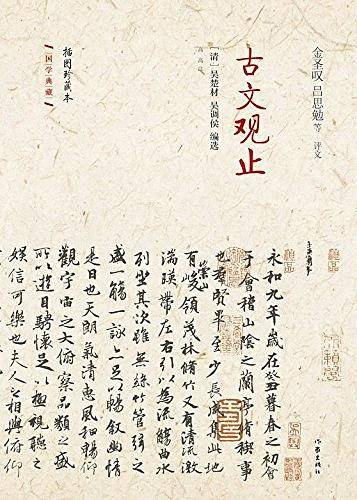 金圣叹 吕思勉 等 评文
古文观止
[清] 吴楚材 吴调侯 编选
插图珍藏本
国学典藏
永和九年歲在癸丑暮春之初會
于會稽山陰之蘭亭脩稧事
也羣賢畢至少長咸集此地
有崇山峻領茂林脩竹又有清流激
湍暎帶左右引以為流觴曲水
列坐其次雖無絲竹管弦之
盛一觴一詠亦足以暢叙幽情
是日也天朗氣清惠風和暢仰
觀宇宙之大俯察品類之盛
所以遊目騁懷足以極視聽之
娛信可樂也夫人
作家出版社